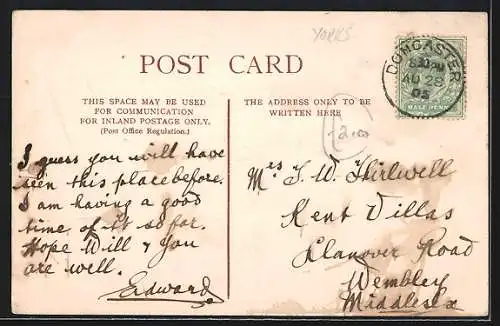 YORKS
POST CARD
THIS SPACE MAY BE USED
FOR COMMUNICATION
FOR INLAND POSTAGE ONLY.
(Post Office Regulation.)
THE ADDRESS ONLY TO BE
WRITTEN HERE
DONCASTER
8.30 PM
AU 28
05
HALF PENNY
I guess you will have
seen this place before.
I am having a good
time of it so far.
Hope Will & you
are well.
Edward
2.00
Mrs T. W. Thirlwell
Kent Villas
Llanover Road
Wembley
Middlesex